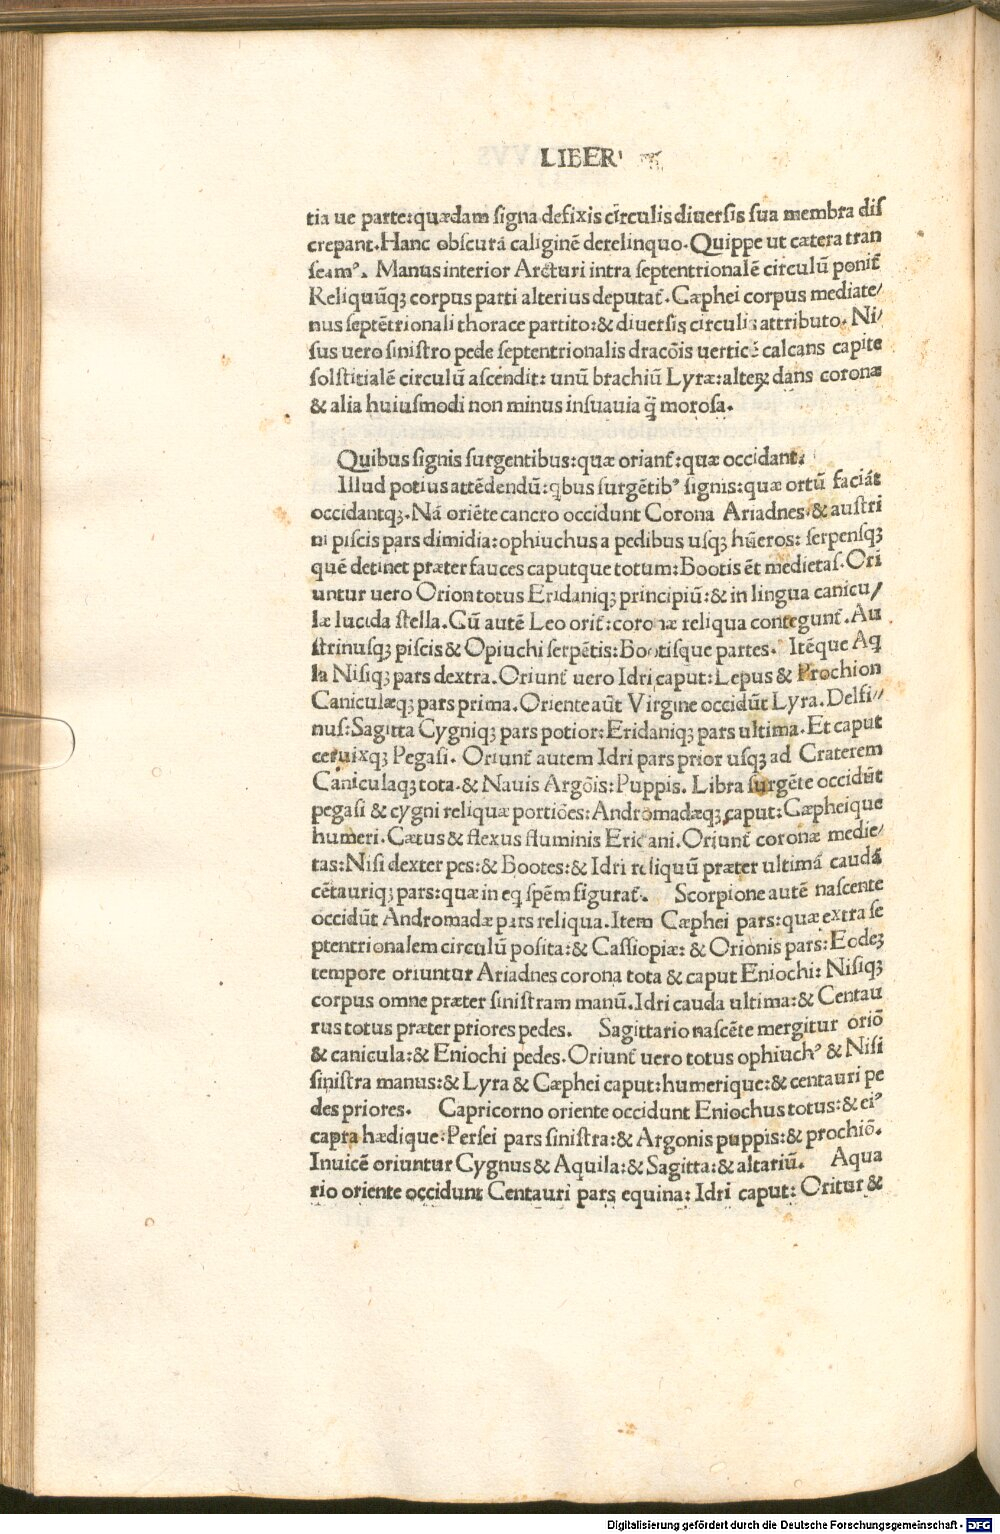 LIBER
tia ue parte:quædam signa defixis circulis diuersis sua membra dis
crepant.Hanc obscurā caliginē derelinquo.Quippe ut cætera tran
seamꝰ. Manus interior Arcturi intra septentrionalē circulū ponit̄
Reliquūqꝫ corpus parti alterius deputat̄.Cæphei corpus mediate/
nus septētrionali thorace partito:& diuersis circulis attributo.Ni/
sus uero sinistro pede septentrionalis dracōis uerticē calcans capite
solstitialē circulū ascendit:unū brachiū Lyræ:alteꝝ dans coronæ
& alia huiusmodi non minus insuauia q̄ morosa.
Quibus signis surgentibus:quæ oriant̄:quæ occidant.
Illud potius attēdendū:qbus surgētibꝰ signis:quæ ortū faciāt
occidantqꝫ.Nā oriēte cancro occidunt Corona Ariadnes.& austri
ni piscis pars dimidia:ophiuchus a pedibus usqꝫ hūeros:serpensqꝫ
quē detinet præter fauces caputque totum:Bootis ēt medietas.Ori
untur uero Orion totus Eridaniqꝫ principiū:& in lingua canicu/
læ lucida stella.Cū autē Leo orit̄:coronæ reliqua contegunt̄.Au
strinusqꝫ piscis & Opiuchi serpētis:Bootisque partes. Itēque Aq
la Nisiqꝫ pars dextra.Oriunt̄ uero Idri caput:Lepus & Prochion
Caniculæqꝫ pars prima.Oriente aūt Virgine occidūt Lyra.Delfi//
nus:Sagitta Cygniqꝫ pars potior:Eridaniqꝫ pars ultima.Et caput
ceruixqꝫ Pegasi. Oriunt̄ autem Idri pars prior usqꝫ ad Craterem
Caniculaqꝫ tota.& Nauis Argōis:Puppis. Libra surgēte occidūt
pegasi & cygni reliquæ portiōes:Andromadæqꝫ caput:Cæpheique
humeri.Cætus & flexus fluminis Ericani.Oriunt̄ coronæ medie/
tas:Nisi dexter pes:& Bootes:& Idri reliquū præter ultimā caudā
cētauriqꝫ pars:quæ in eq spēm figurat̄. Scorpione autē nascente
occidūt Andromadæ pars reliqua.Item Cæphei pars:quæ extra se
ptentrionalem circulū posita:& Cassiopiæ:& Orionis pars:Eodeꝫ
tempore oriuntur Ariadnes corona tota & caput Eniochi:Nisiqꝫ
corpus omne præter sinistram manū.Idri cauda ultima:& Centau
rus totus præter priores pedes. Sagittario nascēte mergitur oriō
& canicula:& Eniochi pedes.Oriunt̄ uero totus ophiuchꝰ & Nisi
sinistra manus:& Lyra & Cæphei caput:humerique:& centauri pe
des priores. Capricorno oriente occidunt Eniochus totus:& eiꝰ
capra hædique.Persei pars sinistra:& Argonis puppis:& prochiō.
Inuicē oriuntur Cygnus & Aquila:& Sagitta:& altariū. Aqua
rio oriente occidunt Centauri pars equina:Idri caput:Oritur &
Digitalisierung gefördert durch die Deutsche Forschungsgemeinschaft - DFG